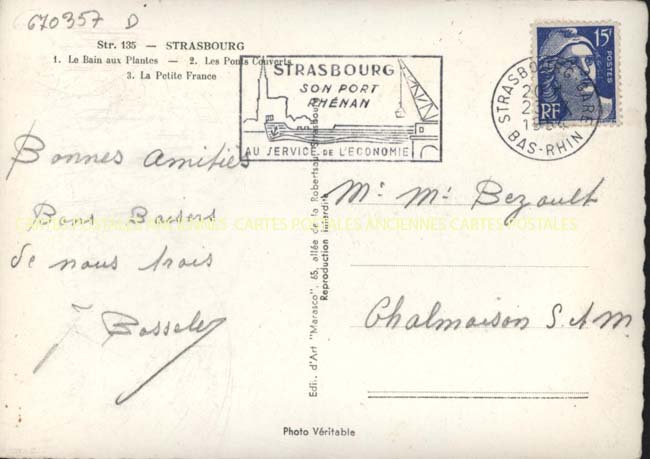 670357 D
Str. 135 — STRASBOURG
1. Le Bain aux Plantes — 2. Les Ponts Couverts
3. La Petite France
STRASBOURG
SON PORT
RHÉNAN
AU SERVICE DE L'ECONOMIE
STRASBOURG GARE
BAS-RHIN
15F
POSTES
RF
Bonnes amitiés
Bons Baisers
de nous trois
CARTES POSTALES ANCIENNES CARTES POSTALES ANCIENNES CARTES POSTALES
Edit. d'Art "Marasco", 65, allée de la Robertsau, Strasbourg
Reproduction interdite
Mr Mr Bezault
Chalmaison S. & M
Photo Véritable